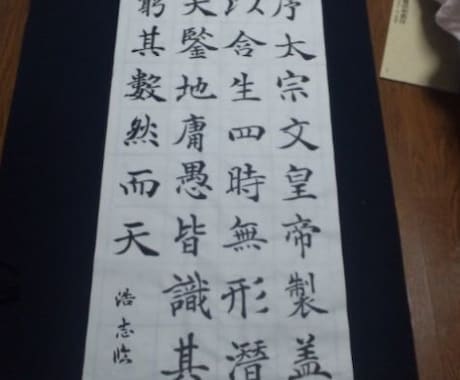 序太宗文皇帝製盖
以含生四時無形潛
天鑒地庸愚皆識其
窮其數然而天
浩志臨